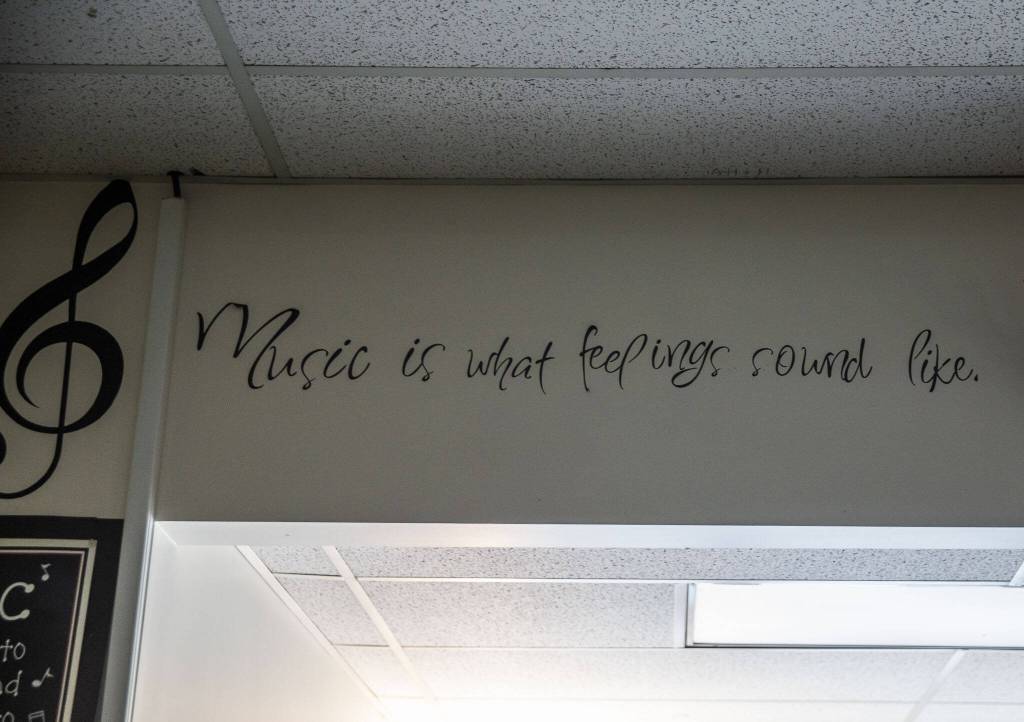 Music is what feelings sound like.
C
to